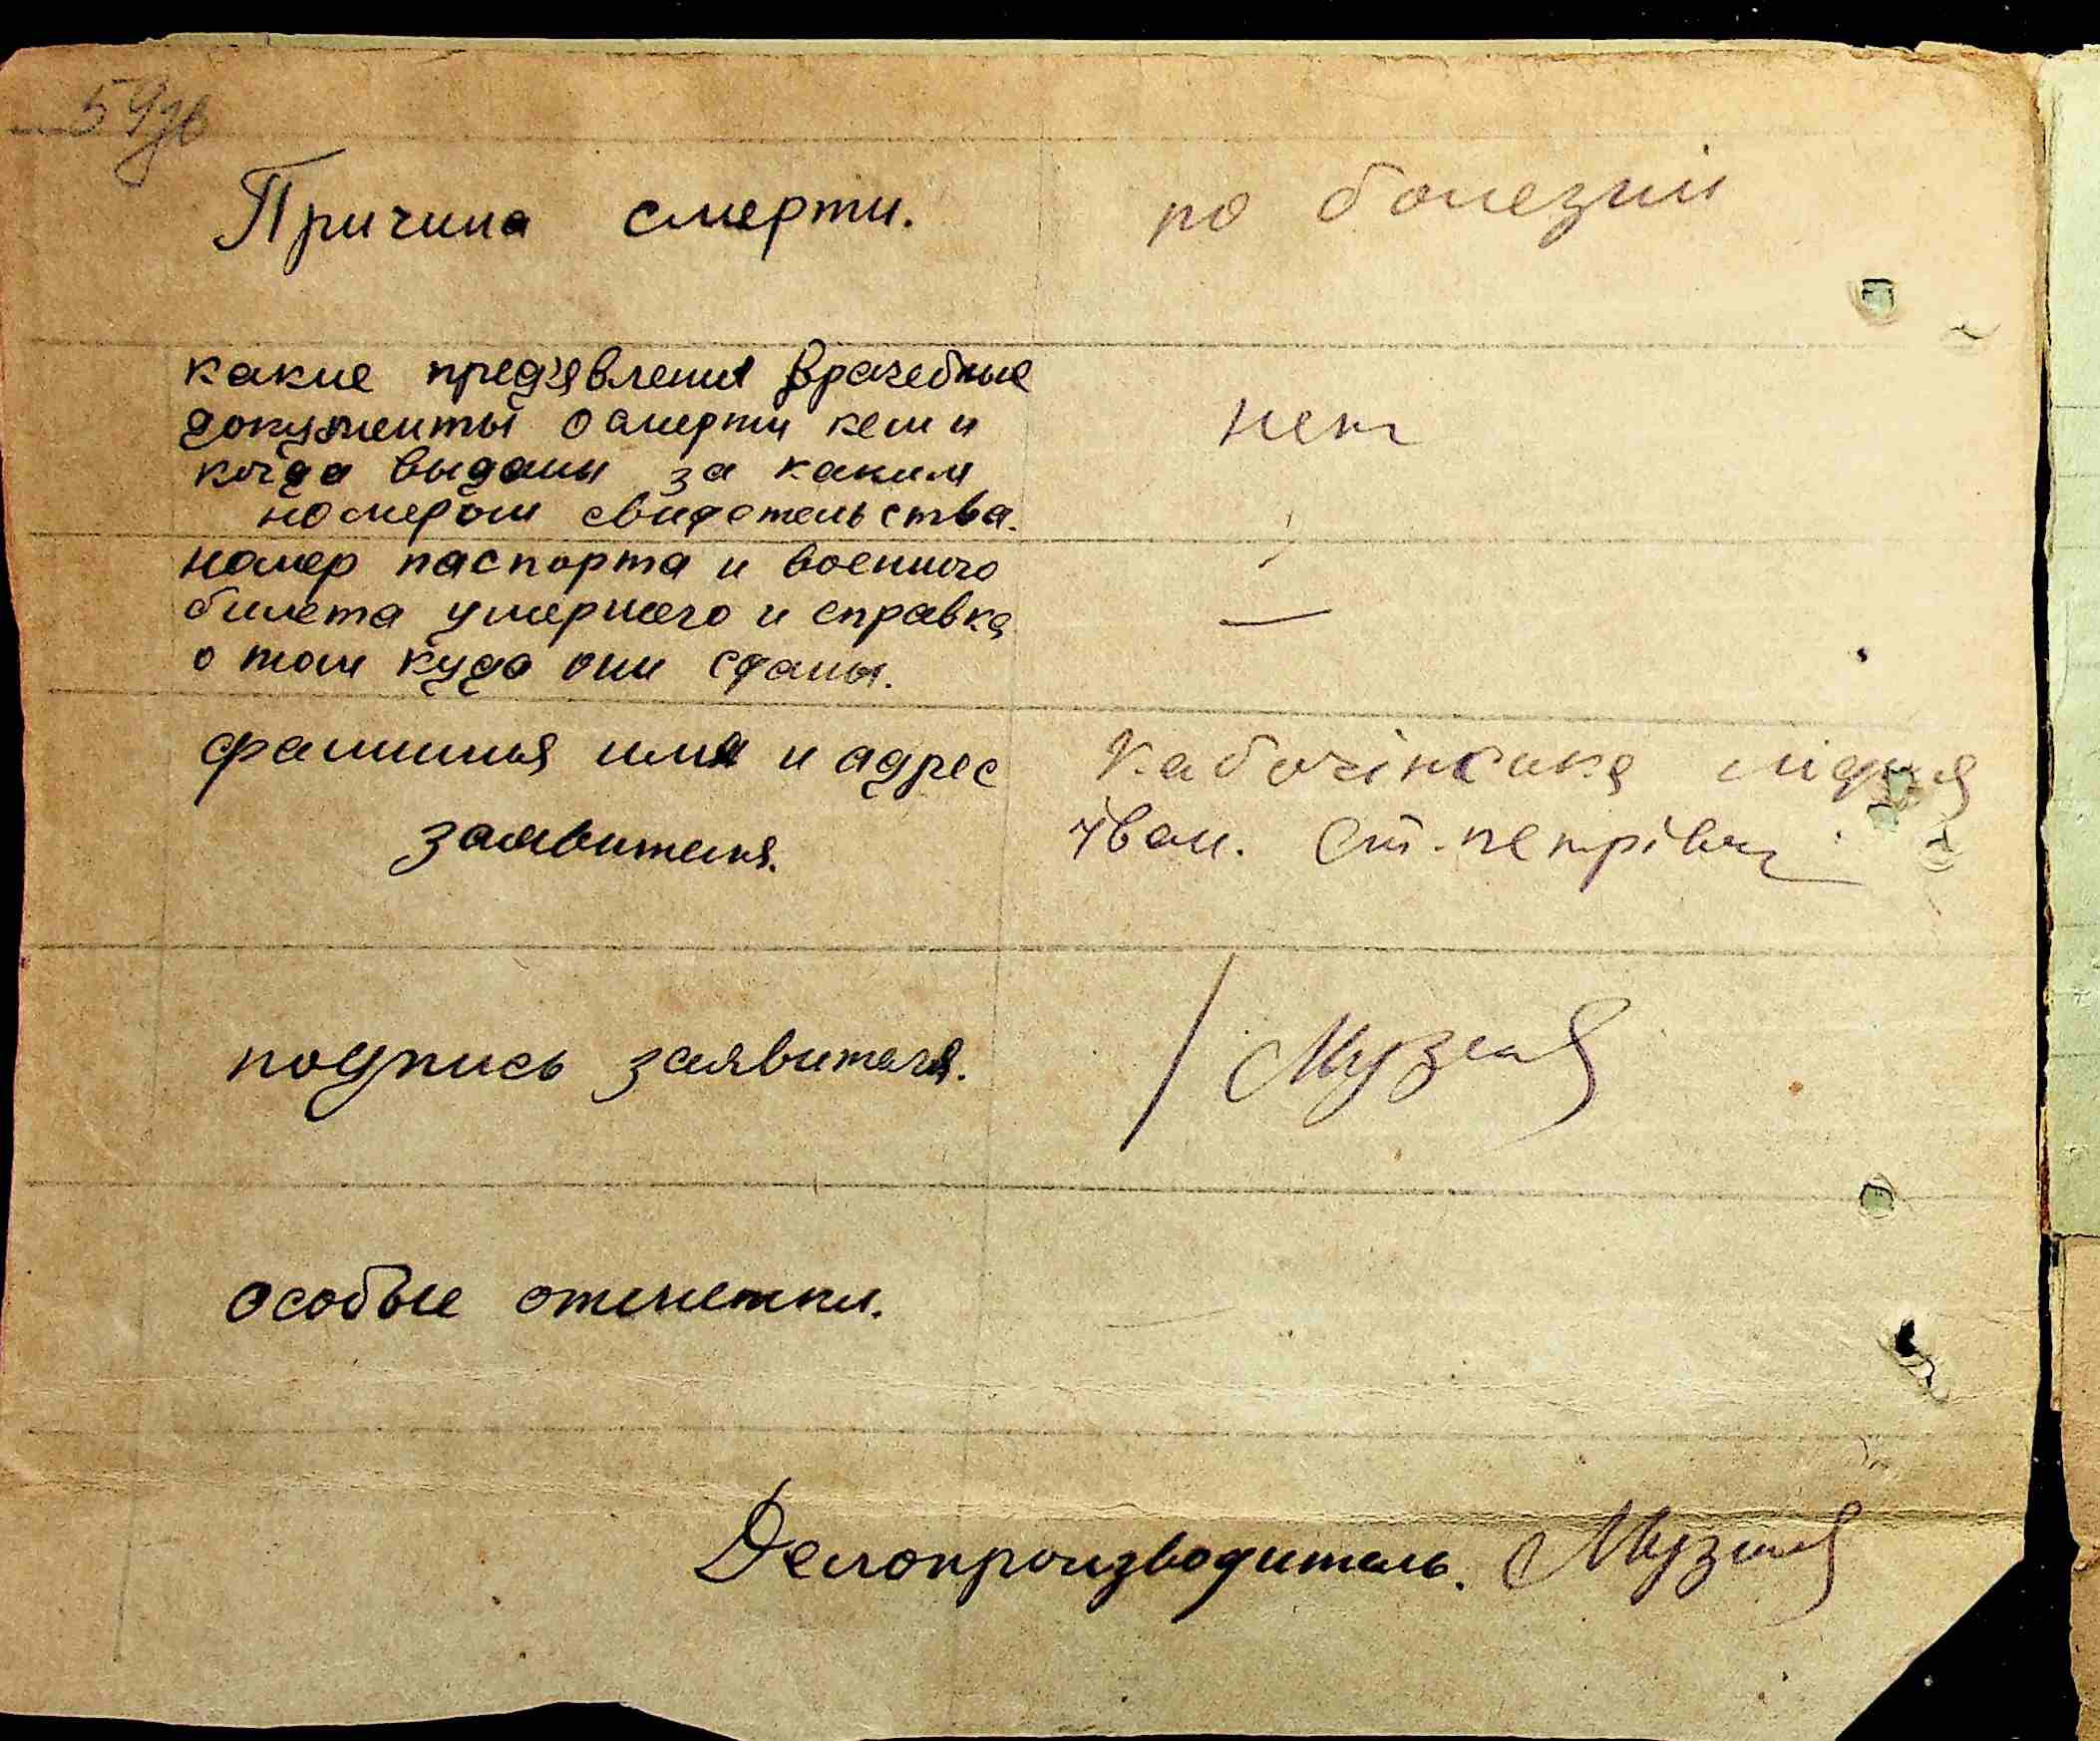 59зв
Причина смерти. по болезни
какие пред'явлены врачебные
документы о смерти кем и нет
когда выданы за каким
номером свидетельства.
номер паспорта и военного
билета умершего и справка —
о том куда они сданы.
фамилия имя и адрес
заявителя. Іван. Ст. петрівці
подпись заявителя.
особые отметки.
Делопроизводитель.